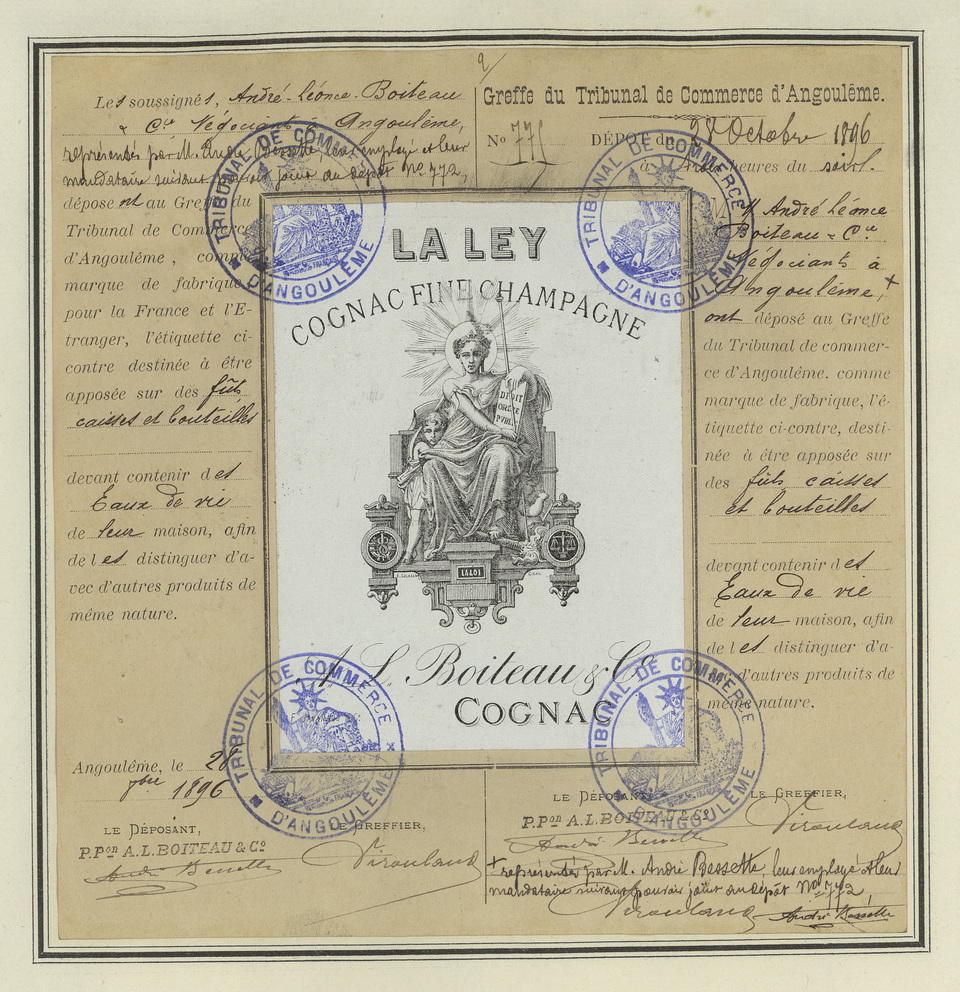 Les soussignés, André-Léonce Boiteau
& Cie Négociants à Angoulême,
représentés par M. André Bessette, leur employé et leur
mandataire suivant pouvoir joint au dépôt No 772,
déposent au Greffe du
Tribunal de Commerce
d'Angoulême, comme
marque de fabrique
pour la France et l'E-
tranger, l'étiquette ci-
contre destinée à être
apposée sur des fûts
caisses et bouteilles
devant contenir des
Eaux de vie
de leur maison, afin
de les distinguer d'a-
vec d'autres produits de
même nature.
Angoulême, le 28
8bre 1896
LE DÉPOSANT,
LE GREFFIER,
P.Pon A.L. BOITEAU & Co
André Bessette
Viroulaud
LA LEY
COGNAC FINE CHAMPAGNE
DROIT
ORDRE
PUBL
LALOI
A L Boiteau & Co
COGNAC
Greffe du Tribunal de Commerce d'Angoulême.
No 775
DÉPÔT du 28 Octobre 1896
à trois heures du soir.
M André Léonce
Boiteau & Cie
Négociants à
Angoulême, +
ont déposé au Greffe
du Tribunal de commer-
ce d'Angoulême. comme
marque de fabrique, l'é-
tiquette ci-contre, desti-
née à être apposée sur
des fûts caisses
et bouteilles
devant contenir des
Eaux de vie
de leur maison, afin
de les distinguer d'a-
vec d'autres produits de
même nature.
LE DÉPOSANT,
LE GREFFIER,
P.Pon A.L. BOITEAU & Co
André Bessette
Viroulaud
+ représentés par M. André Bessette, leur employé et leur
mandataire suivant pouvoir joint au dépôt No 772
Viroulaud André Bessette
TRIBUNAL DE COMMERCE D'ANGOULÊME
TRIBUNAL DE COMMERCE D'ANGOULÊME
TRIBUNAL DE COMMERCE D'ANGOULÊME
TRIBUNAL DE COMMERCE D'ANGOULÊME